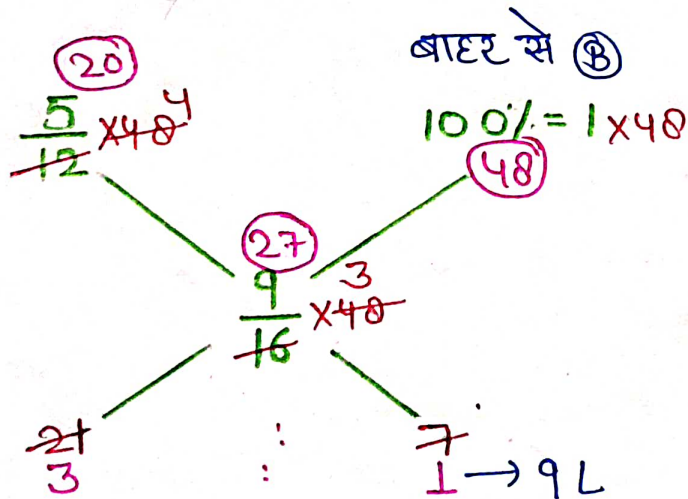 बाहर से Ⓑ
20
5/12 ×48 4
100% = 1 ×48
48
27
9/16 ×48 3
21 : 7
3 : 1 → 9 L